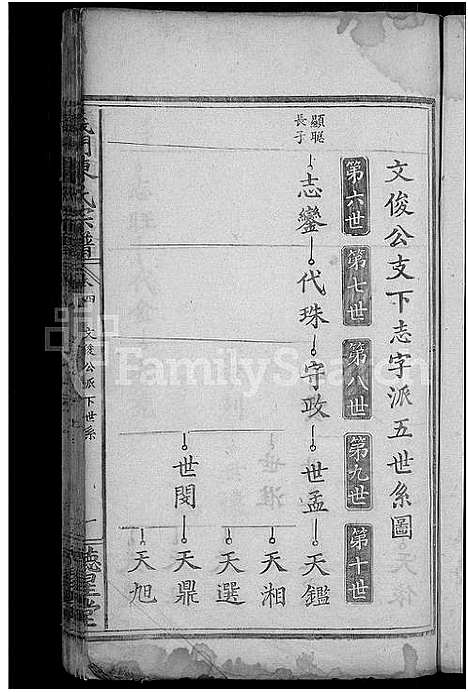 文俊公支下志字派五世系圖
第六世
第七世
第八世
第九世
第十世
顯聰
長子
志鑾
代珠
守政
世孟
天鑑
天湘
世淮
天選
世閔
天鼎
天旭
義門陳氏宗譜
卷四
文俊公派下世系
一
德星堂
FamilySearch